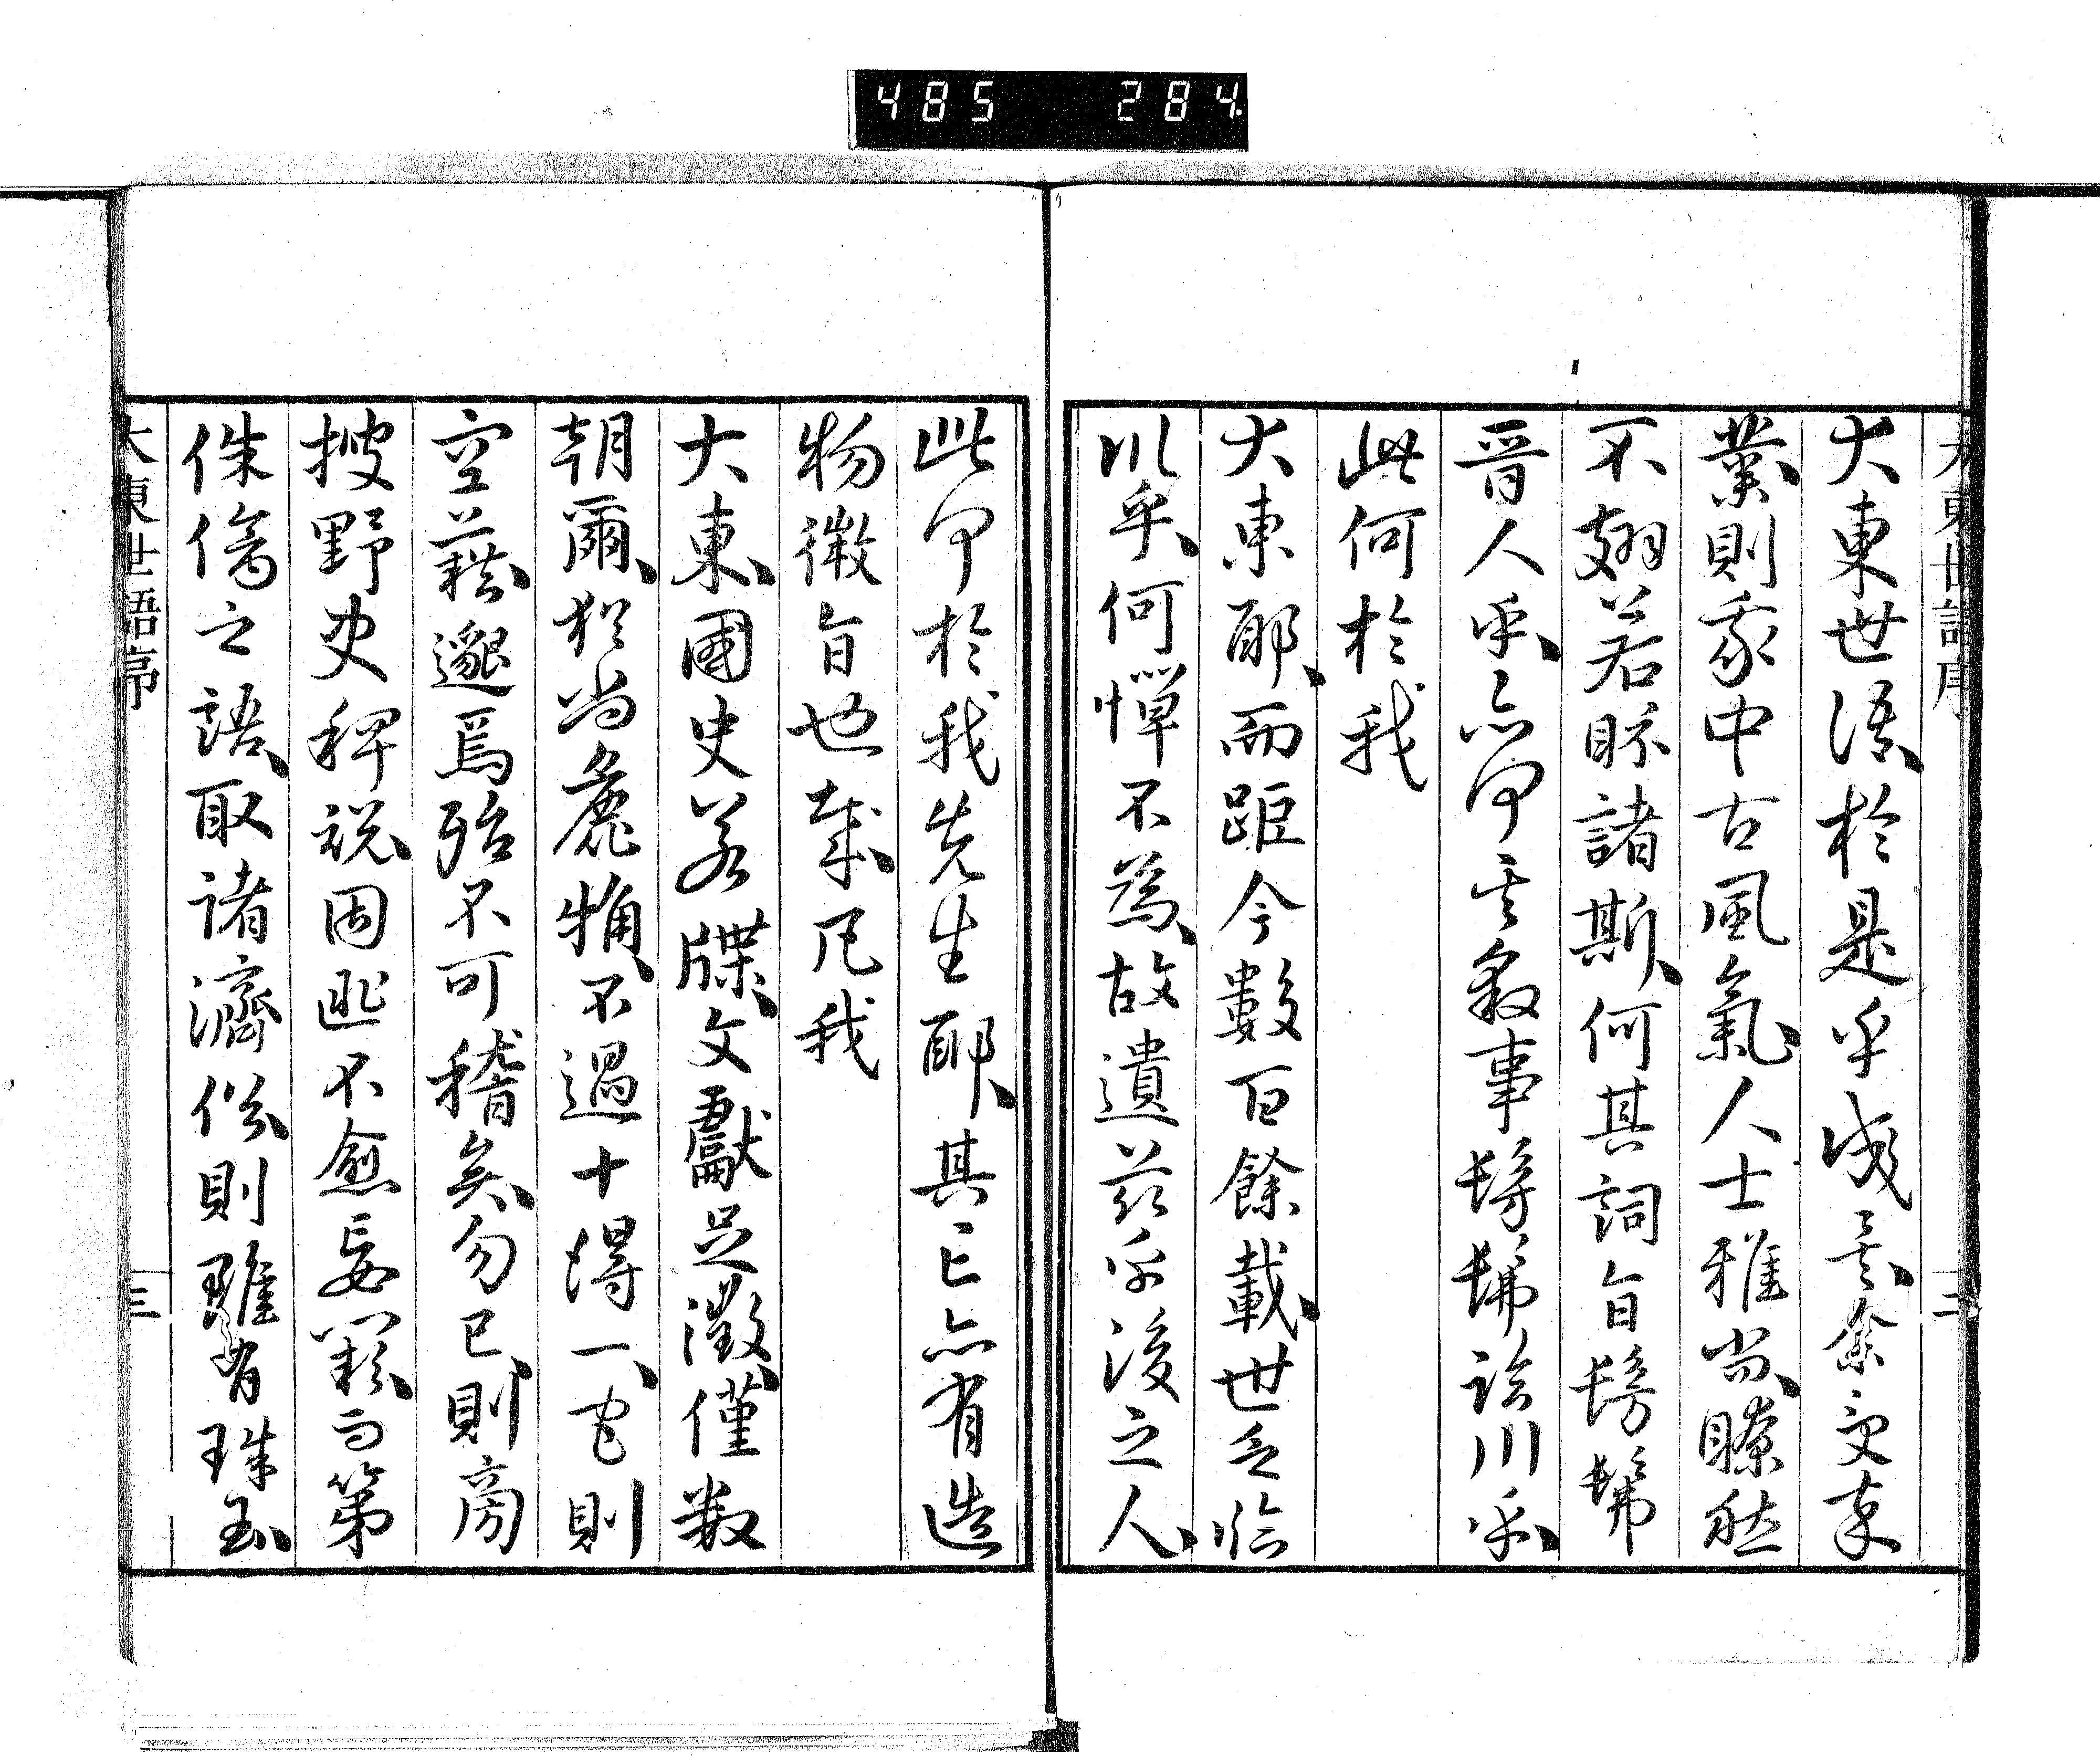 485 284
大東世語序
二
大東世語於是乎成矣余受卒
業則我中古風氣人士雅尚瞭然
不翅若眎諸斯何其詞旨髣髴
晉人乎亦何其敘事髣髴臨川乎
此何於我
大東耶而距今數百餘載世乏臨
川乎何憚不為故遺茲乎後之人
此何於我先生耶其亡亦有造
物微旨也哉凡我
大東國史若牒文獻足徵僅數
朝爾猶尚麁觕不過十得一它則
空藉邈焉殆不可稽矣勿已則旁
搜野史稗說固匪不愈妄
侏㒧之語取諸濟俗則雖有珠玉
大東世語序
三